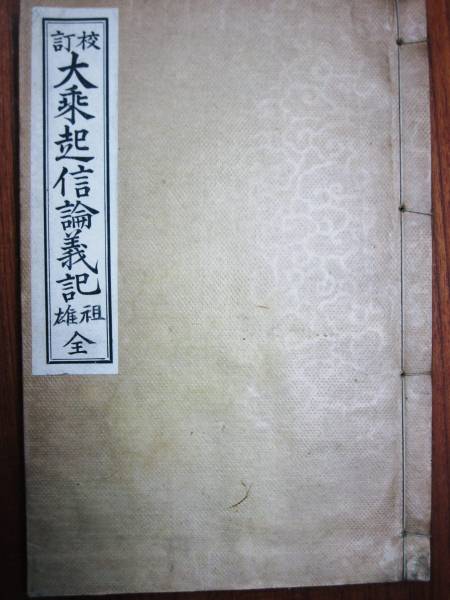 校訂
大乘起信論義記
祖雄
全